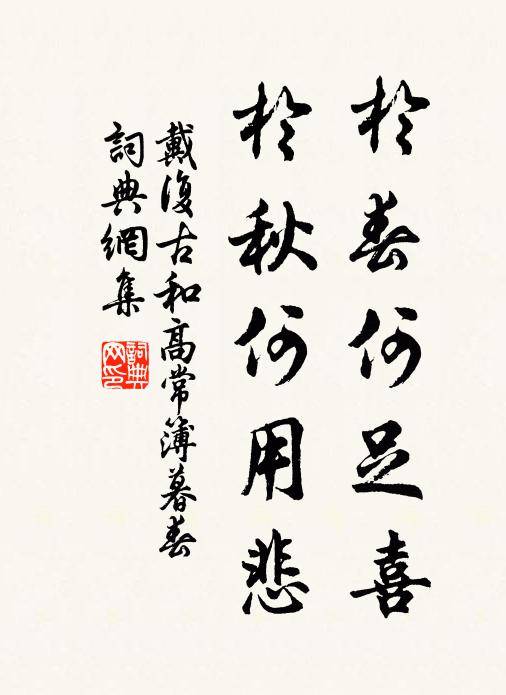 於春何足喜
於秋何用悲
戴復古和高常簿暮春
詞典網集
詞典
网印